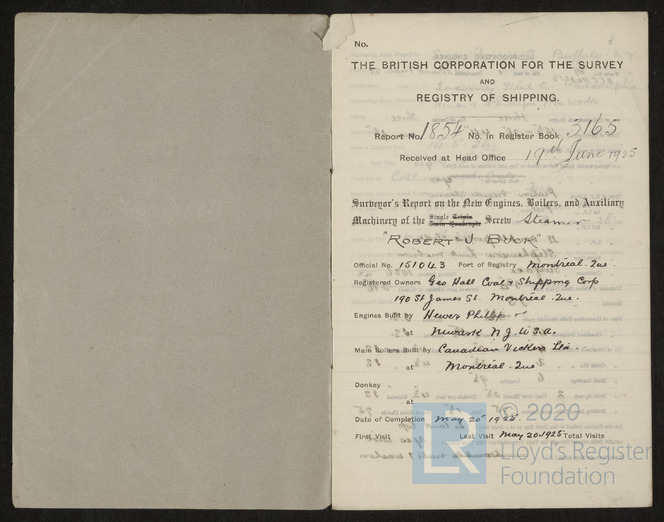 No.
THE BRITISH CORPORATION FOR THE SURVEY
AND
REGISTRY OF SHIPPING.
Report No. 1854 No. in Register Book 3165
Received at Head Office 19th June 1925
Surveyor's Report on the New Engines, Boilers, and Auxiliary
Machinery of the Single Triple Twin Quadruple Screw Steamer
"ROBERT J BUCK"
Official No. 151043 Port of Registry Montreal. Que.
Registered Owners Geo Hall Coal & Shipping Corp
190 St James St. Montreal. Que.
Engines Built by Hewes Phillips
at Newark N.J. U.S.A.
Main Boilers Built by Canadian Vickers Ltd.
at Montreal. Que
Donkey " "
at
Date of Completion May 20th 1925.
First Visit Last Visit May 20.1925 Total Visits
© 2020
LR Lloyd's Register
Foundation